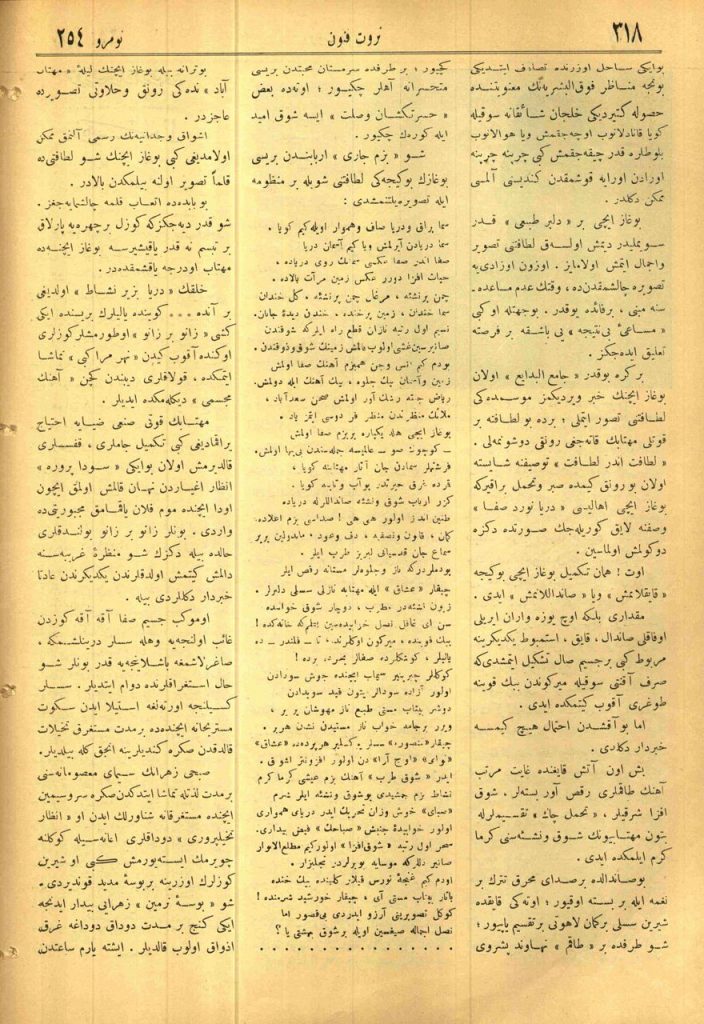 ٣١٨
ثروت فنون
نومرو ٢٥٤
بوایکی ساحل اوزرنده تصادف ایتدیکی
بونجه مناظر فوق‌البشریه‌نك معنویتنده
حصوله کتیردیکی خلجان شائقانه سوقیله
کویا قنادلانوب اوچه‌جقمش ویا هوالانوب
بلوطلره قدر چیقه‌جقمش کبی چرپنه چرپنه
اورادن اورایه قوشمقدن کندیسنی آلمسی
ممکن دکلدر.
بوغاز ایچی بر « دلبر طبیعی » قدر
سویملیدر دیمش اولسه‌ق لطافتنی تصویر
واجمال ایتمش اولمایز. اوزون اوزادی‌یه
تصویره چالشمقدن ده، وقتك عدم مساعده‌
سنه مبنی، برفائده یوقدر. بوجهتله او کبی
« مساعیٔ بی‌نتیجه » یی باشقه بر فرصته
تعلیق ایده‌جکز.
بر کره بوقدر « جامع البدایع » اولان
بوغاز ایچنك خبر ویردیکمز موسمده‌کی
لطافتنی تصور ایتملی؛ برده بو لطافته بر
قوتلی مهتابك قاته‌جغی رونقی دوشونمه‌لی.
« لطافت اندر لطافت » توصیفنه شایسته
اولان بو رونق کیمده صبر وتحمل براقیرکه
بوغاز ایچی اهالیسی « دریا نورد صفا »
وصفنه لایق کوریله‌جك صورتده دکزه
دوکولمش اولماسین.
اوت! همان تکمیل بوغاز ایچی بوکیجه
« قایقلانمش » ویا « صانداللانمش » ایدی.
مقداری بلکه اوچ یوزه واران ایریلی
اوفاقلی صاندال، قایق، استمبوط یکدیکرینه
مربوط کبی برجسیم صال تشکیل ایتمشدی‌که
صرف آقنتی سوقیله میرکوندن بیك قوینه
طوغری آقوب کیتمکده ایدی.
اما بو آقشدن احتمال هیچ کیمسه
خبردار دکلدی.
بش اون آتش قایغنده غایت مرتب
آهنك طاقملری رقص آور بسته‌لر. شوق
افزا شرقیلر، « تحمل چاك » تقسیملرله
بتون مهتابیونك شوق ونشئه‌سنی کرما
کرم ایلمکده ایدی.
بوصاندالده برصدای محرق تترك بر
نغمه ایله بر بسته اوقیور؛ اوته‌کی قایقده
شیرین سسلی برکمان لاهوتی برتقسیم یاپیور؛
شو طرفده بر « طاقم » نهاوند پشروی
کچیور؛ بر طرفده سرمستان محبتدن بریسی
متحسرانه آهلر چکیور؛ اونه‌ده بعض
« حسرتکشان وصلت » ایسه شوق امید
ایله کورك چکیور.
شو « بزم جاری » اربابندن بریسی
بوغازك بوکیجه‌کی لطافتنی شویله بر منظومه
ایله تصویره یلتنمشدی:
سما براق ودریا صاف وهموار اویله‌کیم کویا.
سما دریادن آیرلمش ویا کیم آسمان دریا
صفا اندر صفا عکسی سمانك روی دریاده.
حیات افزا دورر عکس زمین مرآت بالاده.
چمن پرنشئه، مرغان چمن پرنشئه. کل خندان
سما خندان، زمین پرخنده، خندان دیدۀ جانان.
نسیم اول رتبه نازان قطع راه ایلرکه شوقندن
صانیرسین‌غشی اولوب دالمش زمینك شوق وذوقندن.
بودم کیم انس وجن همبزم آهنك صفا اولمش
زمین وآسمان بیك جلوه، بیك آهنك ایله دولمش.
ریاض جنته رشك آور اولمش صحن سعدآباد،
ملائك منظرندن منظر فر دوسی ایتمز یاد.
بوغاز ایچی هله یکپاره بربزم صفا اولمش
ـ کوچوك صو ـ عالمیسه جمله‌سندن بی‌بها اولمش.
فرشته‌لر سمادن جان آتار مهتابنه کویا،
کزر ارباب شوق ونشئه صانداللرله دریاده
طنین انداز اولور هی هی! صداسی بزم اعلاده.
کمان، قانون ونصفیه، دف وعود، ماندولین یریر
سماع جان قدسیانی لبریز طرب ایلر.
بودملردرکه ناز وجلوه‌لر مستانه رقص ایلر
چیقار « عشاق » ایله مهتابه نازلی سسلی دلبرلر.
کوکللر چیرپینیر سماب ایچنده جوش سودادن
اولور آزاده سودالر بتون قید سویدادن
دوشر بیتاب مستی طبیع ناز مهوشان یر یر،
ویرر برجامه خواب ناز مستیدن نشان هریر.
« نوای » « اوج آرا » دن اولور افزونتر اشوق.
ایدر « شوق طرب » آهنك بزم عیشی کرما کرم
نشاط بزم جمشیدی بوشوق ونشئه ایلر شرم
« صبای » خوش وزان تحریك ایدر دریای همواری
اولور خوابیدۀ جنبش « صباحك » فیض بیداری.
سحر اول رتبه « شوق‌افزا » اولورکیم مطلع‌الانوار
صانیر دللرکه موسایه بویرلردر تجلیزار.
اودم کیم غنچۀ نورس قیلار کلبنده بیك خنده
باتار بیتاب مستی آی، چیقار خورشید شرمنده!
کوکل تصویرینی آرزو ایدردی بی‌قصور اما
نصل اجماله صیغسین اویله برشوق بهشتی یا؟
. . . . . . . . . . . . . .
بوترانه بیله بوغاز ایچنك لیلۀ « مهتاب
آباد » نده‌کی رونق وحلاوتی تصویرده
عاجزدر.
اشواق وجدانیه‌نك رسمی آلنمق ممکن
اولامدیغی کبی بوغاز ایچنك شو لطافتی‌ده
قلماً تصویر اولنه بیلمکدن بالادر.
بو بابده‌ده اتعاب قلمه چالشمایه‌جغز.
شو قدر دیه‌جکزکه کوزل برچهره‌یه پارلاق
بر تبسم نه قدر یاقیشیرسه بوغاز ایچنده‌ده
مهتاب اودرجه یاقشمقده‌در.
خلقك « دریا بزیر نشاط » اولدیغی
بر آنده... کوینده یالیلرك بریسنده ایکی
کشی « زانو بر زانو » اوطورمشلرکوزلری
اوکنده آقوب کیدن « نهر مراکبی » تماشا
ایتمکده، قولاقلری دیبندن کچن « آهنك
مجسمی » دیکله‌مکده ایدیلر.
مهتابك قوتی صنعی ضیایه احتیاج
براقمادیغی کبی تکمیل جاملری، قفسلری
قالدیرمش اولان بوایکی « سودا پروره »
انظار اغیاردن نهان قالمش اولمق ایچون
اودا ایچنده موم فلان یاقمامق مجبوریتی‌ده
واردی. بونلر زانو بر زانو بولندقلری
حالده بیله دکزك شو منظرۀ غریبه‌سنه
دالمش کیتمش اولدقلرندن یکدیکرندن عادتا
خبردار دکللردی بیله.
اوموکب جسیم صفا آقه آقه کوزدن
غائب اولنجه‌یه وهله سسلر درینلشمکه،
صاغرلاشمغه باشلاینجه‌یه قدر بونلر شو
حال استغراقلرنده دوام ایتدیلر. سسلر
کسیلنجه اورته‌لغه استیلا ایدن سکوت
مستریحانه ایچنده‌ده برمدت مستغرق تخیلات
قالدقدن صکره کندیلرینه انجق کله بیلدیلر.
صبحی زهرانك سیمای معصومانه‌سنی
برمدت لذتله تماشا ایتدکدن‌صکره سروسیمین
ایچنده مستغرقانه شناورلك ایدن او « انظار
تخیلپروری » دوداقلری اعانه‌سیله کوکلنه
چویرمك ایسته‌یورمش کبی او شیرین
کوزلرك اوزرینه بربوسۀ مدید قوندیردی.
شو « بوسۀ نرمین » زهرایی بیدار ایدنجه
ایکی کنج بر مدت دوداق دوداغه غرق
اذواق اولوب قالدیلر. ایشته یارم ساعتدن